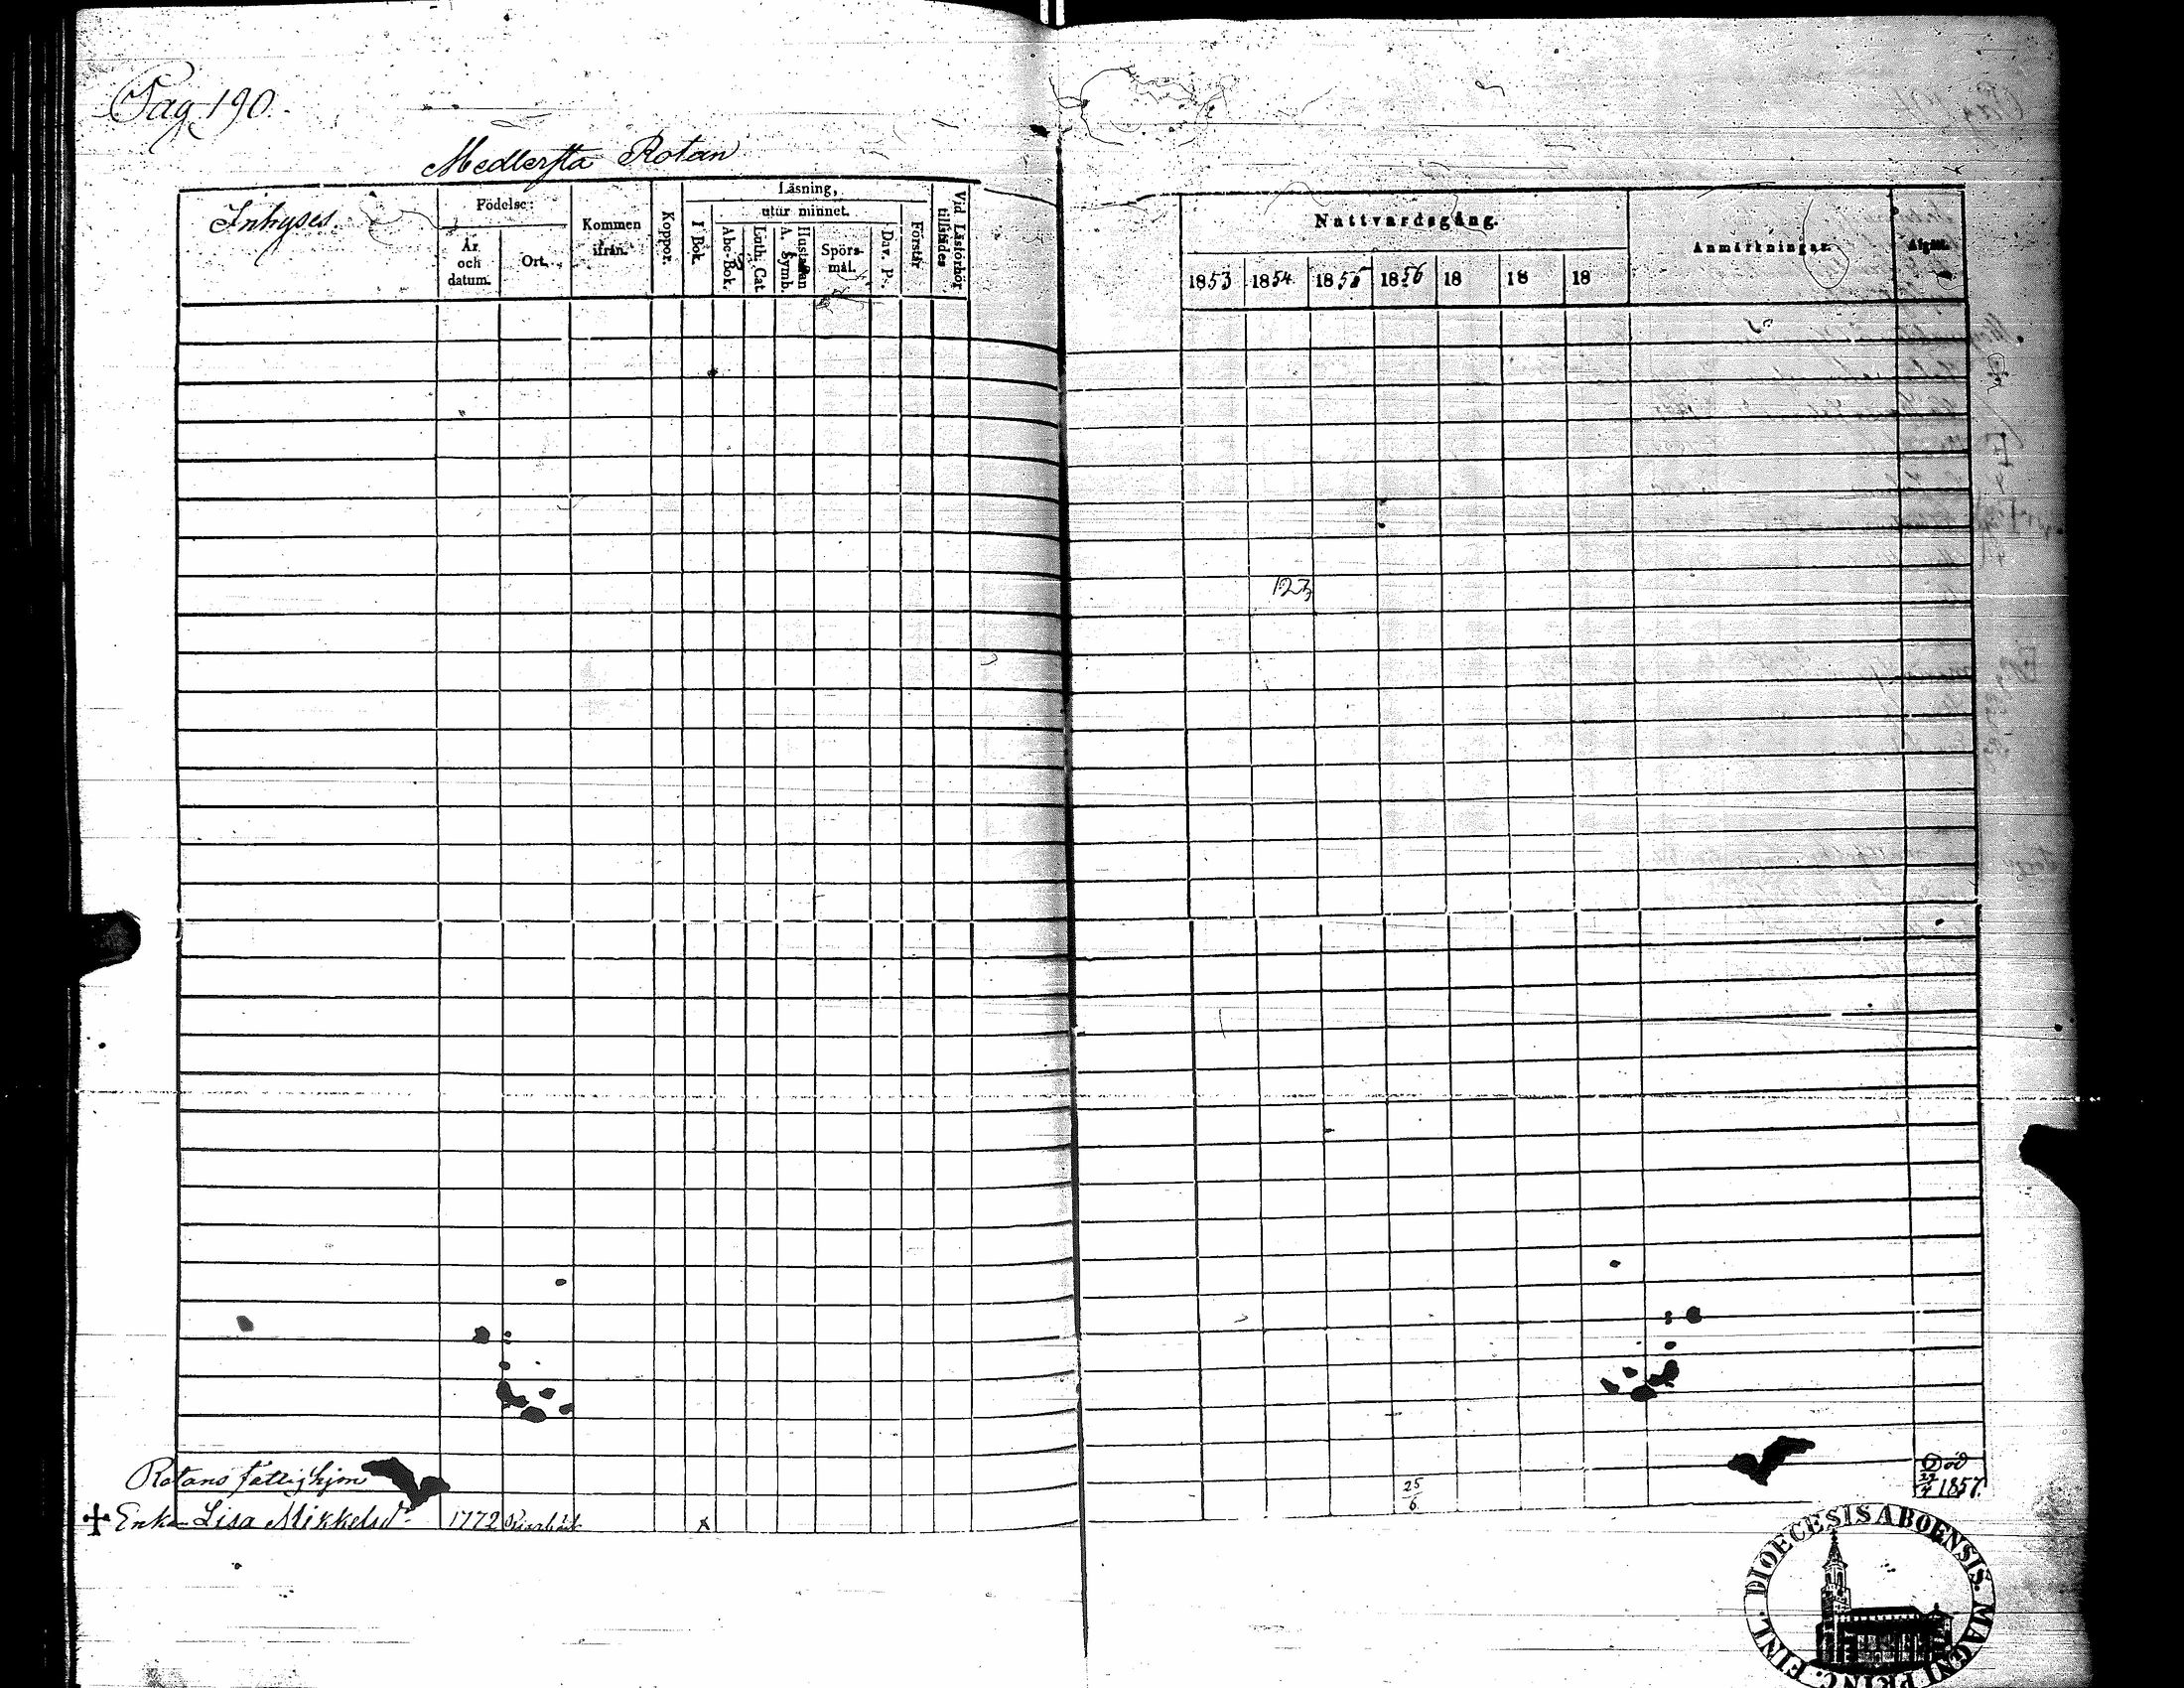 Pag. 190.
Medlersta Rotan
Inhyses.
Födelse:
År och datum.
Ort.
Kommen ifrån.
Koppor.
Läsning,
I Bok.
utur minnet.
Abc-Bok.
Luth. Cat.
Hustaflan A. Symb.
Spörsmål.
Dav. Ps.
Förstår
Vid Läsförhör tillstädes
Nattvardsgång.
1853 1854 1855 1856 18 18 18
Anmärkningar.
Afgått.
123
Rotans fattighjon
+ Enkan Lisa Mikkelsdr 1772
x
25/6
Död
1857.
DIOECESIS ABOENSIS. MAGNI PRINC. FINL.